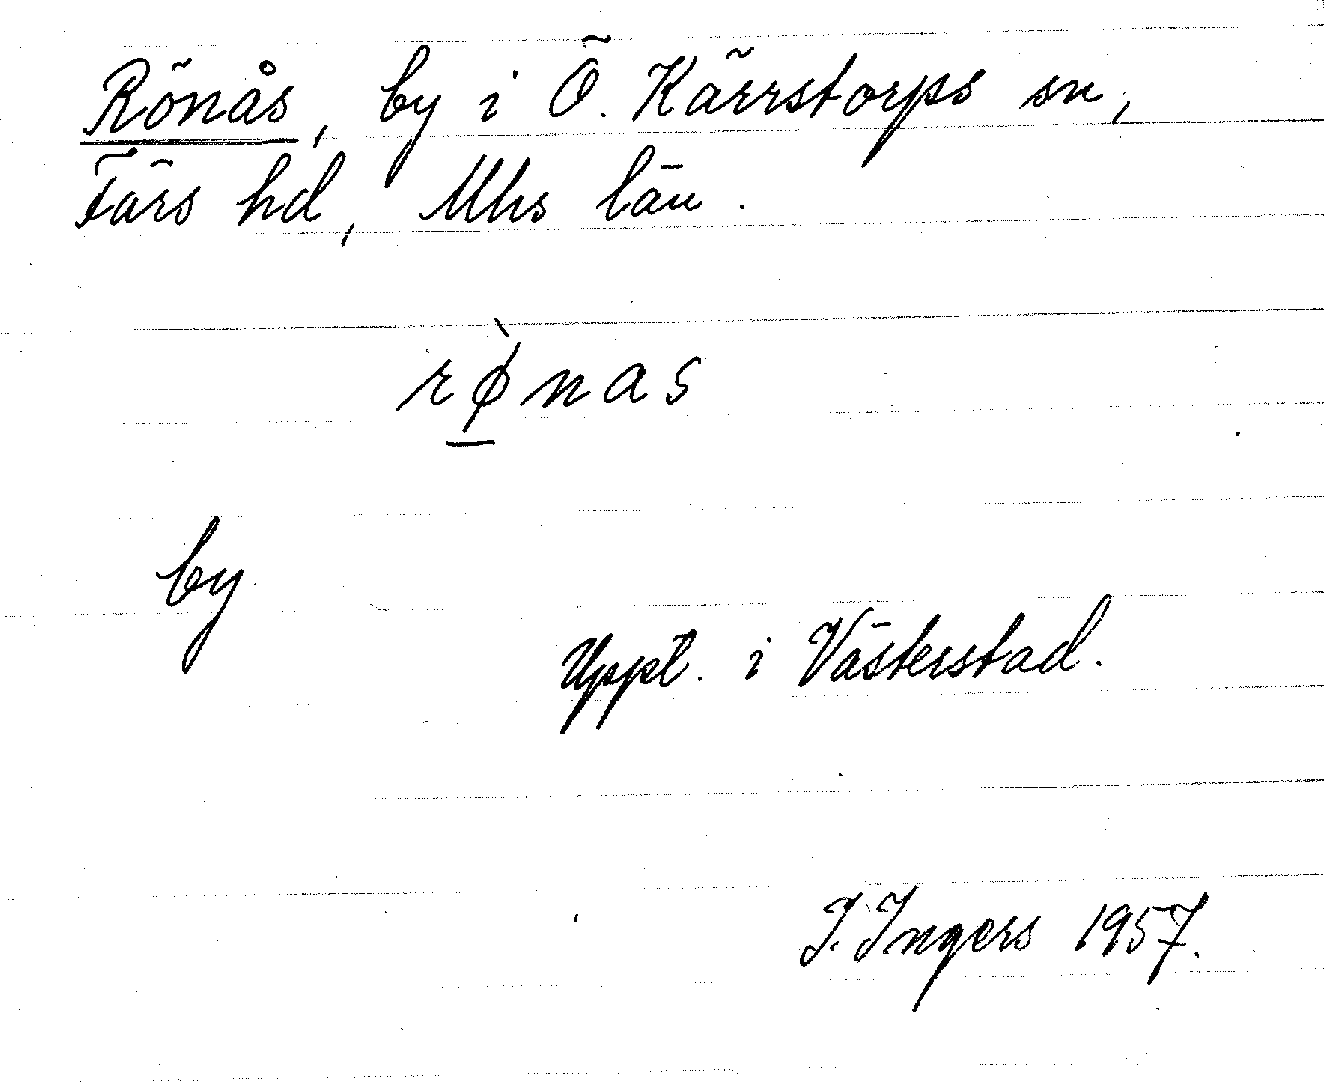 Rönås, by i Ö. Kärrstorps sn,
Färs hd, Mhs län.
rø̱̀nas
by
Uppt. i Västerstad.
I. Ingers 1957.